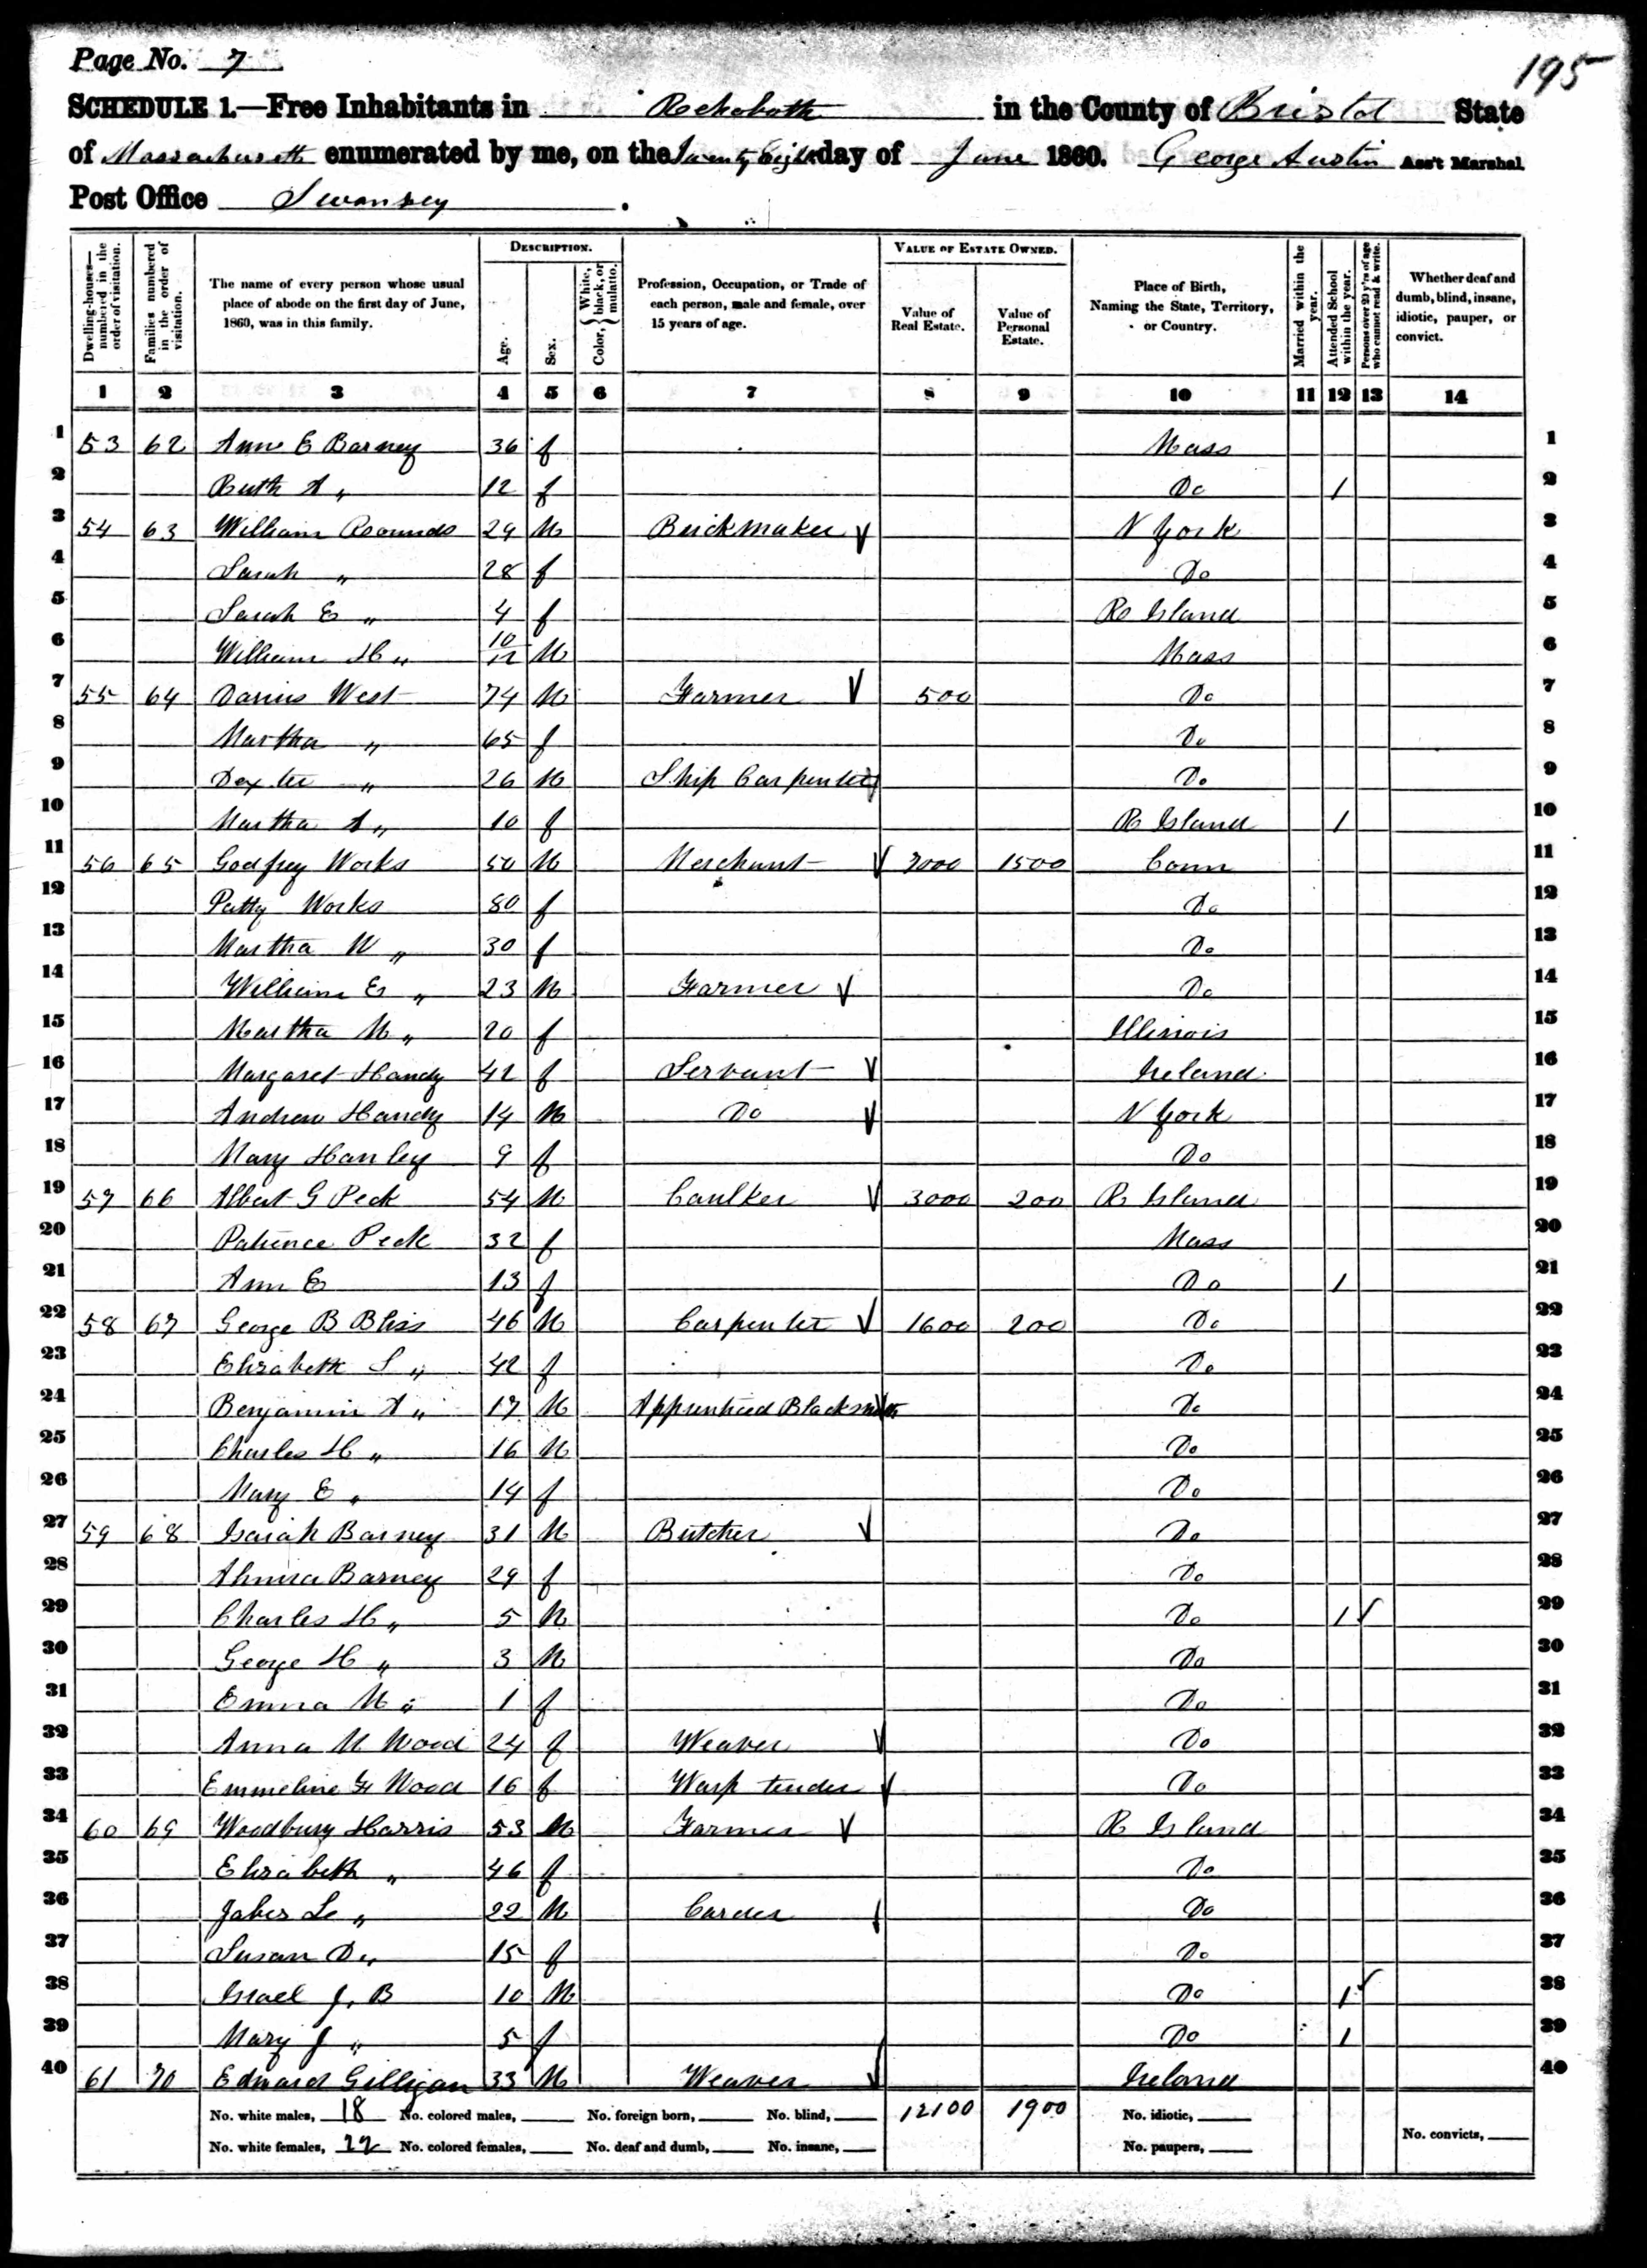 Page No. 7
195
SCHEDULE 1.—Free Inhabitants in Rehoboth in the County of Bristol State
of Massachusetts enumerated by me, on the Twenty Eighth day of June 1860. George Austin Ass't Marshal
Post Office Swansey.
Dwelling-houses—numbered in the order of visitation.
Families numbered in the order of visitation.
The name of every person whose usual place of abode on the first day of June, 1860, was in this family.
DESCRIPTION.
Age.
Sex.
Color, White, black, or mulatto.
Profession, Occupation, or Trade of each person, male and female, over 15 years of age.
VALUE OF ESTATE OWNED.
Value of Real Estate.
Value of Personal Estate.
Place of Birth, Naming the State, Territory, or Country.
Married within the year.
Attended School within the year.
Persons over 20 y'rs of age who cannot read & write.
Whether deaf and dumb, blind, insane, idiotic, pauper, or convict.
1 2 3 4 5 6 7 8 9 10 11 12 13 14
1 53 62 Ann E Barney 36 f Mass 1
2 Ruth A " 12 f Do / 2
3 54 63 William Rounds 29 M Brickmaker N York 3
4 Sarah " 28 f Do 4
5 Sarah E " 4 f R Island 5
6 William H " 10/12 M Mass 6
7 55 64 Darius West 74 M Farmer 500 Do 7
8 Martha " 65 f Do 8
9 Dexter " 26 M Ship Carpenter Do 9
10 Martha A " 10 f R Island / 10
11 56 65 Godfrey Works 50 M Merchant 7000 1500 Conn 11
12 Patty Works 80 f Do 12
13 Martha W " 30 f Do 13
14 William E " 23 M Farmer Do 14
15 Martha M " 20 f Illinois 15
16 Margaret Handy 42 f Servant Ireland 16
17 Andrew Handy 14 M Do N York 17
18 Mary Hanley 9 f Do 18
19 57 66 Albert G Peck 54 M Caulker 3000 200 R Island 19
20 Patience Peck 32 f Mass 20
21 Ann E 13 f Do / 21
22 58 67 George B Bliss 46 M Carpenter 1600 200 Do 22
23 Elizabeth S " 42 f Do 23
24 Benjamin A " 17 M Apprenticed Blacksmith Do 24
25 Charles H " 16 M Do 25
26 Mary E " 14 f Do 26
27 59 68 Isaiah Barney 31 M Butcher Do 27
28 Almira Barney 29 f Do 28
29 Charles H " 5 M Do / 29
30 George H " 3 M Do 30
31 Emma M " 1 f Do 31
32 Anna M Wood 24 f Weaver Do 32
33 Emmeline F Wood 16 f Warp tender Do 33
34 60 69 Woodbury Harris 53 M Farmer R Island 34
35 Elizabeth " 46 f Do 35
36 Jabes L " 22 M Carder Do 36
37 Susan D " 15 f Do 37
38 Israel J. B 10 M Do / 38
39 Mary J " 5 f Do / 39
40 61 70 Edward Gilligan 33 M Weaver Ireland 40
No. white males, 18 No. colored males, No. foreign born, No. blind, 12100 1900 No. idiotic,
No. white females, 22 No. colored females, No. deaf and dumb, No. insane, No. paupers, No. convicts,